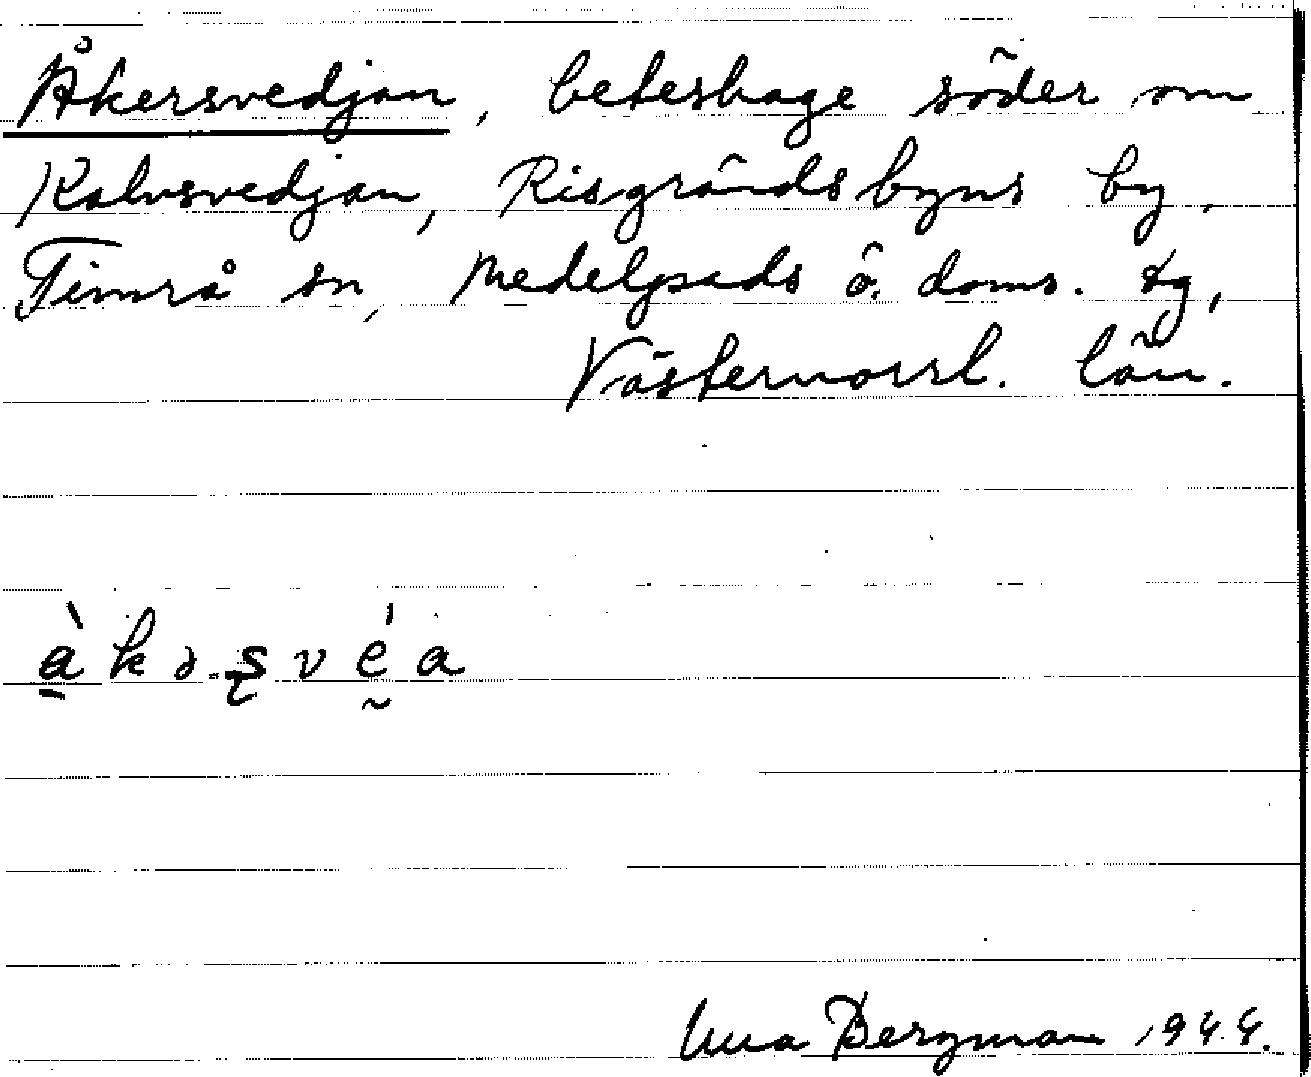 Åkersvedjan, beteshage söder om
Kalvsvedjan, Risgrändsbyns by,
Timrå sn, Medelpads ö. doms. tg,
Västernorrl. län.
àkəʂvéa
Una Bergman 1944.